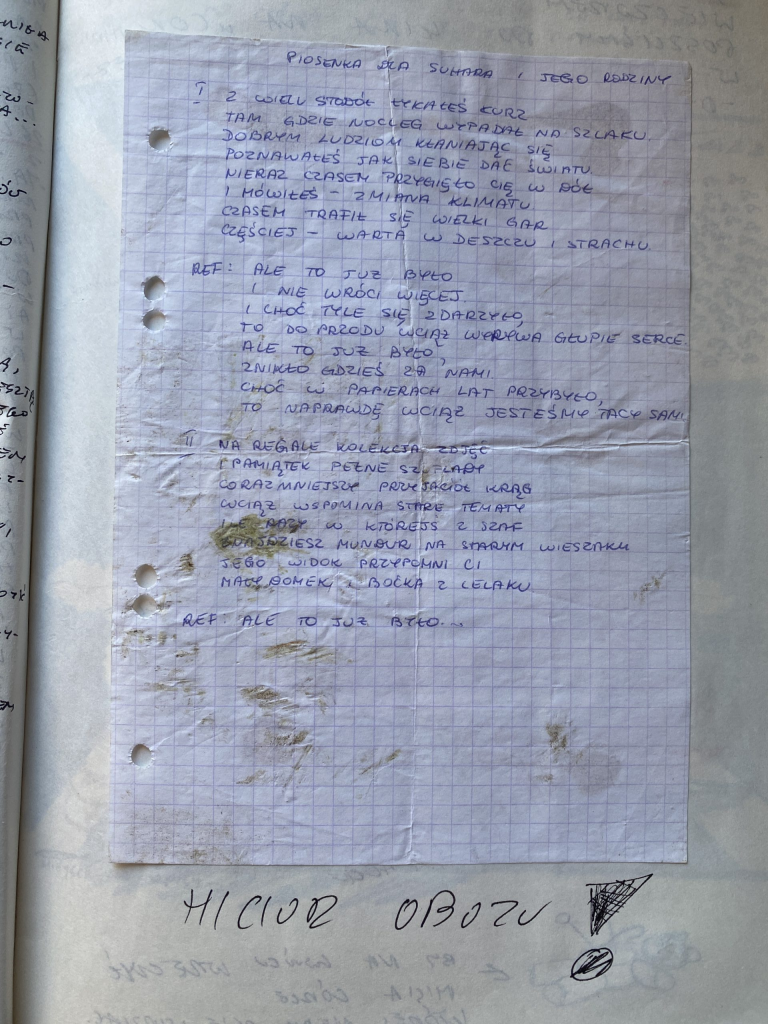 PIOSENKA DLA SUHARA I JEGO RODZINY
I Z WIELU STODÓŁ ŁYKAŁEŚ KURZ
TAM, GDZIE NOCLEG WYPADAŁ NA SZLAKU.
DOBRYM LUDZIOM KŁANIAJĄC SIĘ
POZNAWAŁEŚ JAK SIEBIE DAĆ ŚWIATU.
NIERAZ CZASEM PRZYGIĘŁO CIĘ W DÓŁ
I MÓWIŁEŚ – ZMIANA KLIMATU.
CZASEM TRAFIŁ SIĘ WIELKI GAR
CZĘŚCIEJ – WARTA W DESZCZU I STRACHU.
REF: ALE TO JUŻ BYŁO
I NIE WRÓCI WIĘCEJ.
I CHOĆ TYLE SIĘ ZDARZYŁO,
TO DO PRZODU WCIĄŻ WYRYWA GŁUPIE SERCE.
ALE TO JUŻ BYŁO,
ZNIKŁO GDZIEŚ ZA NAMI
CHOĆ W PAPIERACH LAT PRZYBYŁO,
TO NAPRAWDĘ WCIĄŻ JESTEŚMY TACY SAMI
II NA REGALE KOLEKCJA ZDJĘĆ
I PAMIĄTEK PEŁNE SZUFLADY
CORAZ MNIEJSZY PRZYJACIÓŁ KRĄG
WCIĄŻ WSPOMINA STARE TEMATY
ILE RAZY W KTÓREJŚ Z SZAF
ZNAJDZIESZ MUNDUR NA STARYM WIESZAKU
JEGO WIDOK PRZYPOMNI CI
MAŁY DOMEK I BOĆKA Z LELAKU
REF: ALE TO JUŻ BYŁO...
HICIOR OBOZU !